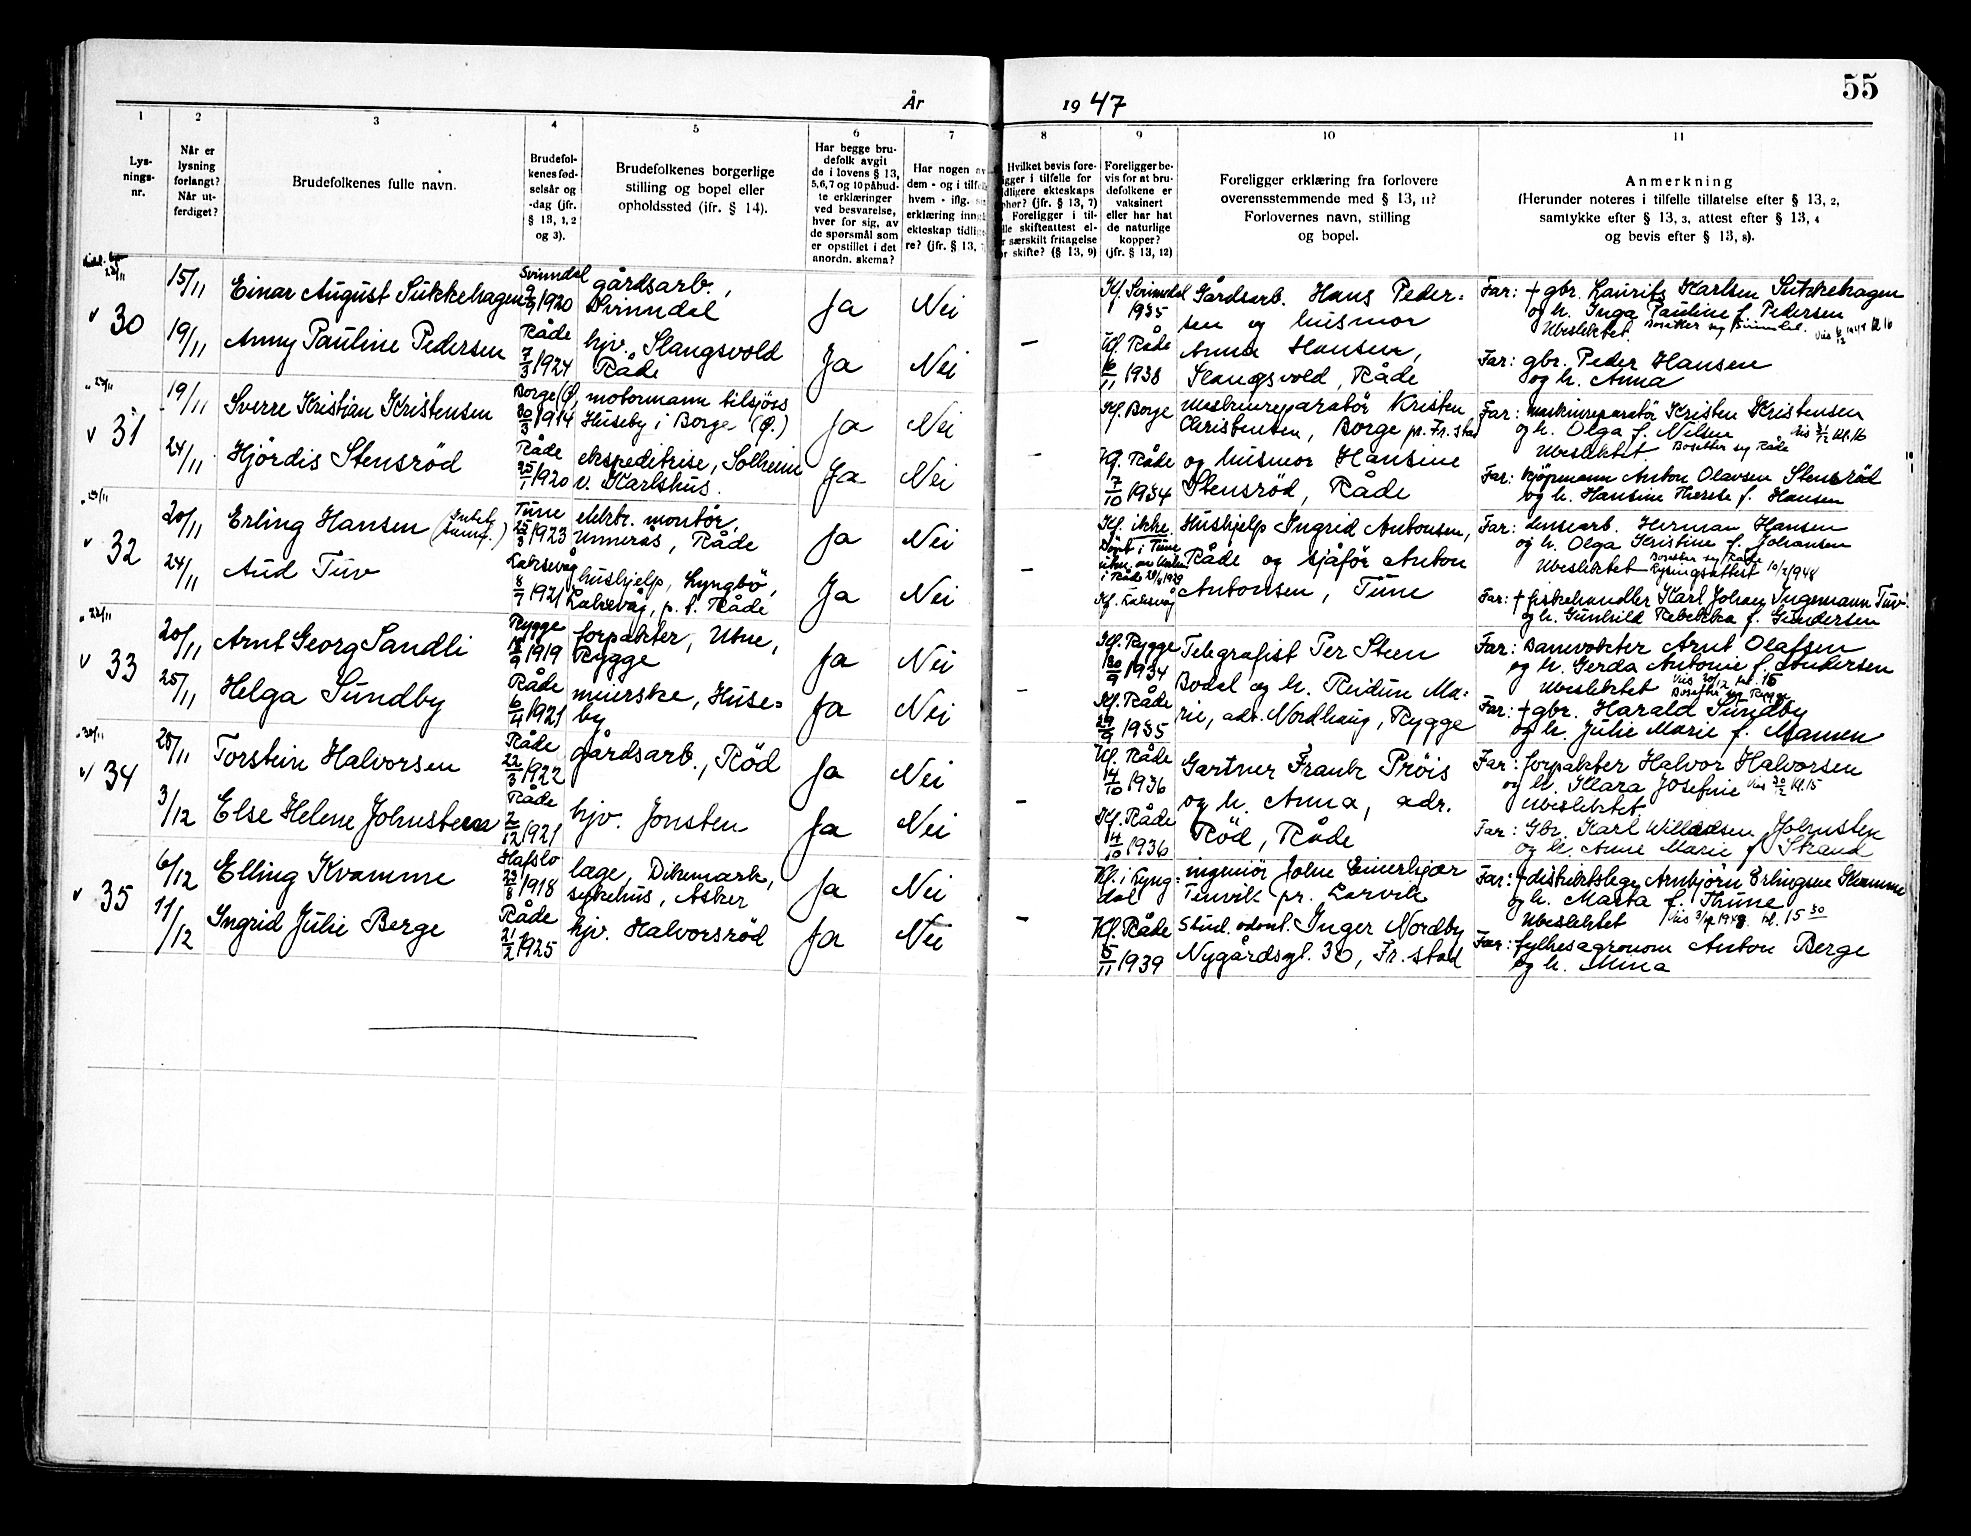 55
År 1947
1 2 3 4 5 6 7 8 9 10 11
Lys-
nings-
nr.
Når er
lysning
forlangt?
Når ut-
ferdiget?
Brudefolkenes fulle navn.
Brudefol-
kenes fød-
selsår og
-dag (jfr.
§ 13, 1, 2
og 3).
Brudefolkenes borgerlige
stilling og bopel eller
opholdssted (jfr. § 14).
Har begge bru-
defolk avgit
de i lovens § 13,
5,6,7 og 10 påbud-
te erklæringer
ved besvarelse,
hver for sig, av
de spørsmål som
er opstillet i det
anordn. skema?
Har nogen av
dem - og i tilfelle
hvem - iflg.
erklæring inng
ekteskap tidlig
re? (jfr. § 13,
Hvilket bevis fore-
ligger i tilfelle for
tidligere ekteskaps
ophør? (jfr. § 13, 7)
Foreligger i til-
felle skifteattest el-
er særskilt fritagelse
for skifte? (§ 13, 9)
Foreligger be-
vis for at bru-
defolkene er
vaksinert
eller har hat
de naturlige
kopper?
(jfr. § 13, 12)
Foreligger erklæring fra forlovere
overensstemmende med § 13, 11?
Forlovernes navn, stilling
og bopel.
Anmerkning
(Herunder noteres i tilfelle tillatelse efter § 13, 2,
samtykke efter § 13, 3, attest efter § 13, 4
og bevis efter § 13, 8).
30
15/11
Einar August Sukkehagen
Svinndal
1920
gårdsarb.,
Svinndal
Ja Nei
Kf. Svinndal
1935
Gårdsarb. Hans Peder-
sen og husmor
Far: + gbr. Laurits Karlsen Sukkehagen
og h. Inga Pauline f. Pedersen
Ubeslektet. Bosetter seg Svinndal.
19/11
Anny Pauline Pedersen
Råde
7/3 1924
hjv. Slangsvold
Råde
Ja Nei
—
Kf. Råde
6/11 1938
Anna Hansen,
Slangsvold, Råde
Far: gbr. Peder Hansen
og h. Anna
31
19/11
Sverre Kristian Kristensen
Borge (Ø.
30/3 1914
motormann tilsjøss
Huseby i Borge (Ø.)
Ja Nei
Kf. Borge
Maskinreparatör Kristen
Christensen, Borge pr. Fr.stad
Far: maskinreparatör Kristen Kristensen
og h. Olga f. Nilsen
Ubeslektet Bosetter seg Råde
24/11
Hjördis Stensröd
Råde
25/1 1920
ekspeditrise, Solheim
v. Karlshus.
Ja Nei
—
Kf. Råde
7/10 1934
og husmor Hansine
Stensröd, Råde
Far: kjöpmann Anton Olavsen Stensröd
og h. Hansine Therese f. Hansen
32
20/11
Erling Hansen
Tune
25/3 1923
elektr. montör,
Unnerås, Råde
Ja Nei
Kf. ikke.
Döpt i Tune
Hushjelp Ingrid Antonsen,
Råde og sjåför Anton
Far: lensearb. Herman Hansen
og h. Olga Kristine f. Johansen
Ubeslektet Bosetter seg Råde
Lysningsattest 10/2 1948
24/11
Aud Tuv
Laksevåg
8/7 1921
hushjelp, Lyngbö,
Laksevåg, p. t. Råde
Ja Nei
—
Kf. Laksevåg
Antonsen, Tune
Far: + fiskehandler Karl Johan Ingemann Tuv
og h. Gunhild Rebekka f. Gundersen
33
20/11
Arnt Georg Sandli
Rygge
1919
forpakter, Utne,
Rygge
Ja Nei
Kf. Rygge
30/9 1934
Telegrafist Per Steen
Bodal og h. Reidun Ma-
Far: Banevokter Arnt Olafsen
og h. Gerda Antonie f. Andersen
Ubeslektet Vies 20/12 kl. 15
Bosetter seg Rygge
25/11
Helga Sundby
Råde
6/4 1921
meierske, Huse-
by
Ja Nei
—
Kf. Råde
29/9 1935
rie, adr. Nordhaug, Rygge
Far: + gbr. Harald Sundby
og h. Julie Marie f. Mamen
34
28/11
Torstein Halvorsen
Råde
22/3 1922
gårdsarb., Röd
Ja Nei
Kf. Råde
4/10 1936
Gartner Frank Pröis
og h. Anna, adr.
Far: forpakter Halvor Halvorsen
og h. Klara Josefine
Ubeslektet
3/12
Else Helene Johnsteen
Råde
2/12 1921
hjv. Jonsten
Ja Nei
—
Kf. Råde
4/10 1936
Röd, Råde
Far: Gbr. Karl Willadsen Johnsten
og h. Anne Marie f. Strand
35
6/12
Elling Kvamme
Hafslo
23/8 1918
læge, Dikemark,
sykehus, Asker
Ja Nei
Kf. i Lyng-
dal
ingeniör John Einerkjær
Tenvik pr. Larvik
Far: + distriktslege Arnbjörn Erlingsen Kvamme
og h. Marta f. Thune
Ubeslektet Vies 3/1 1948 kl. 15 30
11/12
Ingrid Julie Berge
Råde
21/2 1925
hjv. Halvorsröd
Ja Nei
—
Kf. Råde
5/11 1939
Stud. odont. Inger Nordby
Nygårdsgt. 30, Fr.stad
Far: fylkesagronom Anton Berge
og h. Mina